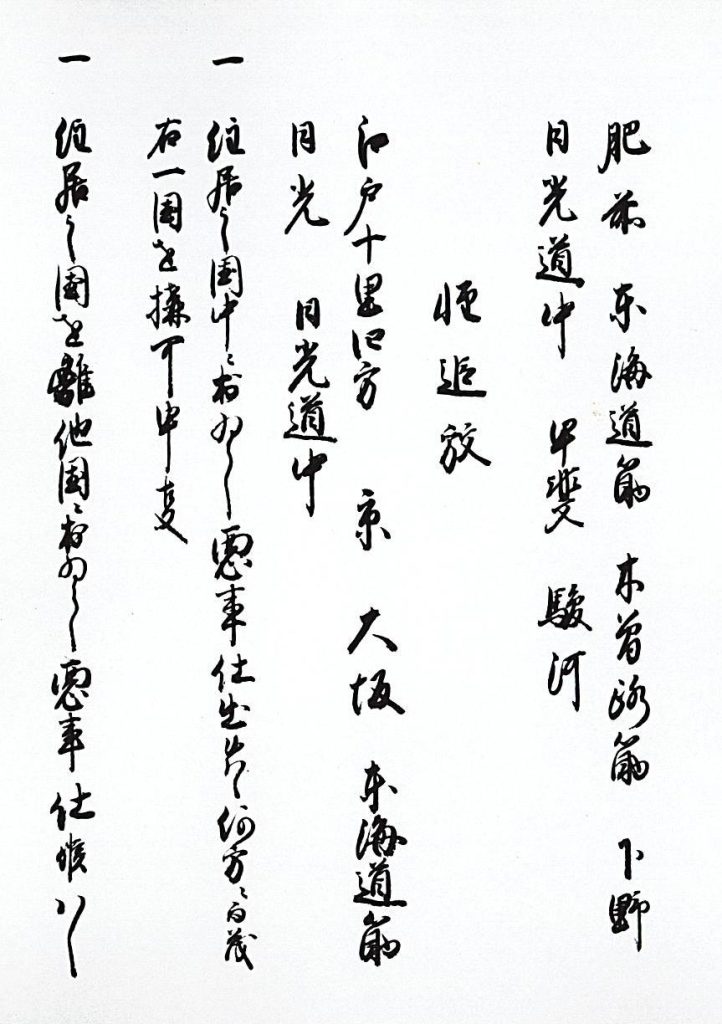 肥前 東海道筋 木曽路筋 下野
日光道中 甲斐 駿河
軽追放
江戸十里四方 京 大坂 東海道筋
日光 日光道中
一 住居之国中ニ於ゐて悪事仕出候ハヽ何方ニ而茂
右一国を構可申事
一 住居之国を離他国ニ於ゐて悪事仕候ハヽ